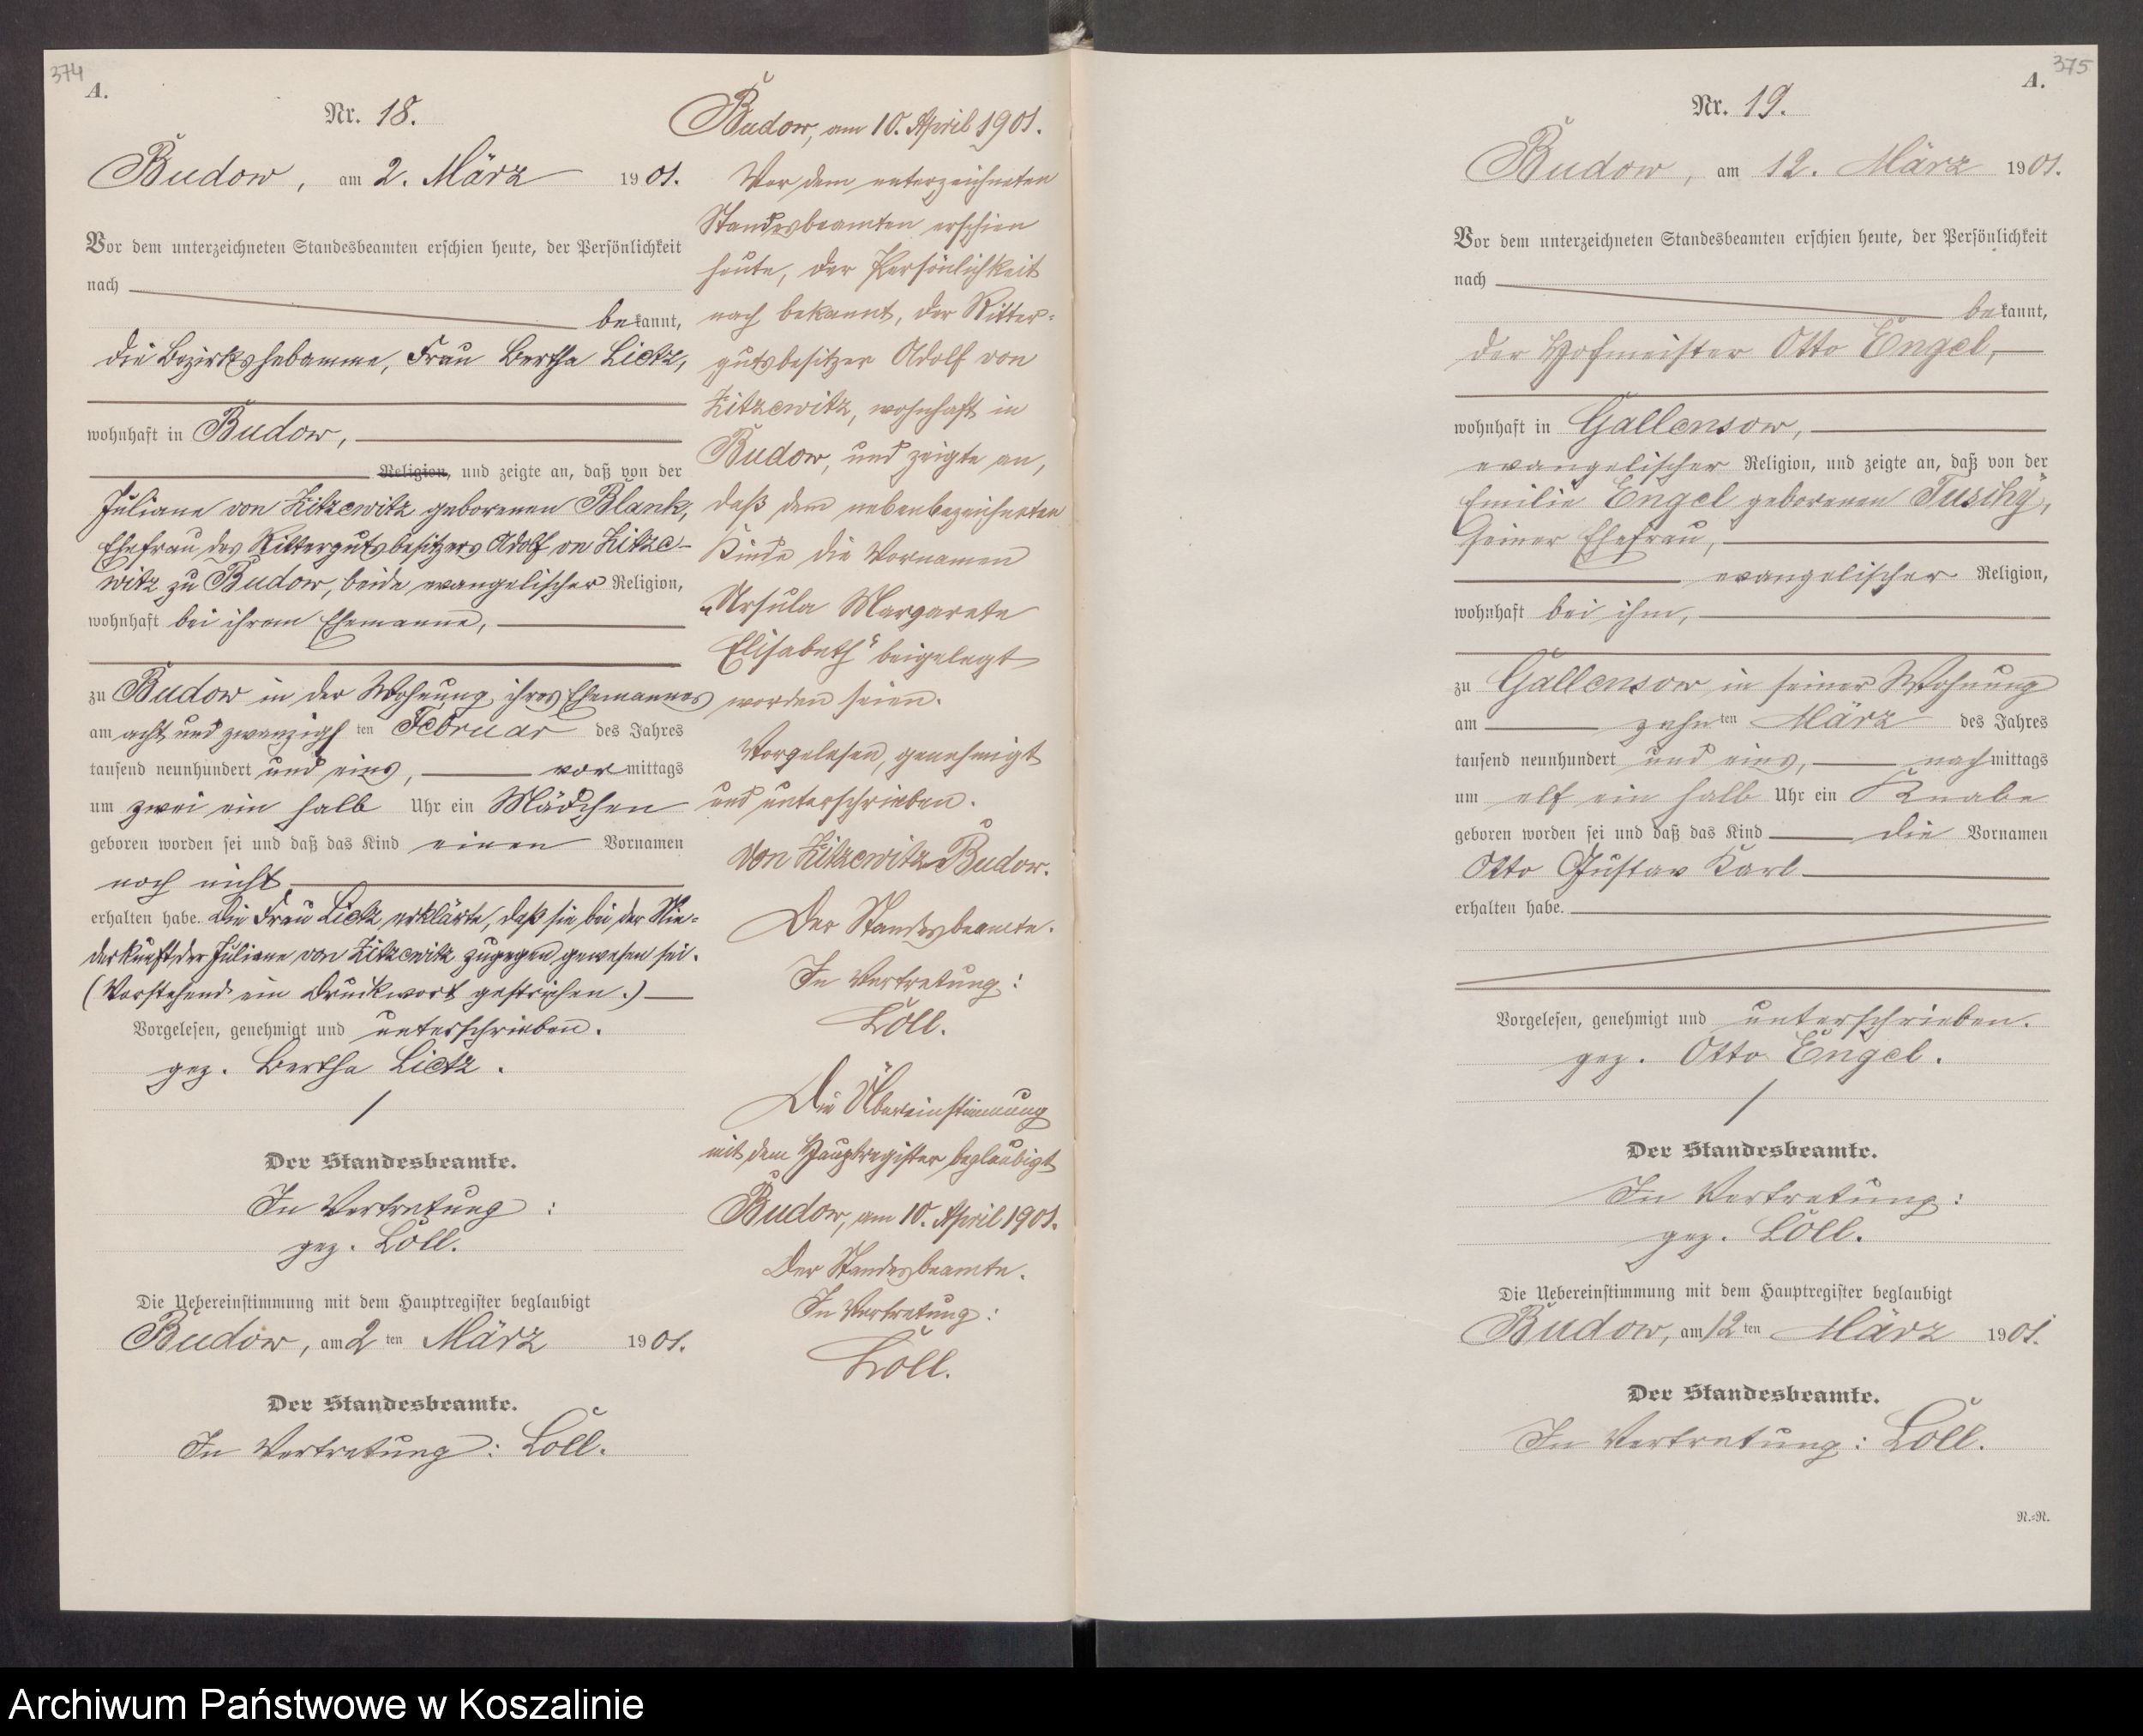 374
A.
Nr. 18.
Budow, am 2. März 1901.
Vor dem unterzeichneten Standesbeamten erschien heute, der Persönlichkeit
nach
bekannt,
die Bezirkshebamme, Frau Bertha Lietz,
wohnhaft in Budow,
Religion, und zeigte an, daß von der
Juliane von Zitzewitz geborenen Blank,
Ehefrau des Rittergutsbesitzers Adolf von Zitze-
witz zu Budow, beide evangelischer Religion,
wohnhaft bei ihrem Ehemanne,
zu Budow in der Wohnung ihres Ehemannes
am acht und zwanzigsten Februar des Jahres
tausend neunhundert und eins, vormittags
um zwei ein halb Uhr ein Mädchen
geboren worden sei und daß das Kind einen Vornamen
noch nicht
erhalten habe. Die Frau Lietz erklärte, daß sie bei der Nie-
derkunft der Juliane von Zitzewitz zugegen gewesen sei.
(Vorstehend ein Druckwort gestrichen.)
Vorgelesen, genehmigt und unterschrieben.
gez. Bertha Lietz.
Der Standesbeamte.
In Vertretung :
gez. Löll.
Die Uebereinstimmung mit dem Hauptregister beglaubigt
Budow, am 2 ten März 1901.
Der Standesbeamte.
In Vertretung: Löll.
Budow, am 10. April 1901.
Vor dem unterzeichneten
Standesbeamten erschien
heute, der Persönlichkeit
nach bekannt, der Ritter-
gutsbesitzer Adolf von
Zitzewitz, wohnhaft in
Budow, und zeigte an,
daß dem nebenbezeichneten
Kinde die Vornamen
„Ursula Margarete
Elisabeth“ beigelegt
worden seien.
Vorgelesen, genehmigt
und unterschrieben.
von Zitzewitz-Budow.
Der Standesbeamte.
In Vertretung:
Löll.
Die Übereinstimmung
mit dem Hauptregister beglaubigt
Budow, am 10. April 1901.
Der Standesbeamte.
In Vertretung:
Löll.
375
A.
Nr. 19.
Budow, am 12. März 1901.
Vor dem unterzeichneten Standesbeamten erschien heute, der Persönlichkeit
nach
bekannt,
der Hofmeister Otto Engel,
wohnhaft in Gallensow,
evangelischer Religion, und zeigte an, daß von der
Emilie Engel geborenen Tuschy,
seiner Ehefrau,
evangelischer Religion,
wohnhaft bei ihm,
zu Gallensow in seiner Wohnung
am zehnten März des Jahres
tausend neunhundert und eins, nachmittags
um elf ein halb Uhr ein Knabe
geboren worden sei und daß das Kind die Vornamen
Otto Gustav Karl
erhalten habe.
Vorgelesen, genehmigt und unterschrieben.
gez. Otto Engel.
Der Standesbeamte.
In Vertretung:
gez. Löll.
Die Uebereinstimmung mit dem Hauptregister beglaubigt
Budow, am 12 ten März 1901.
Der Standesbeamte.
In Vertretung: Löll.
N.=N.
Archiwum Państwowe w Koszalinie